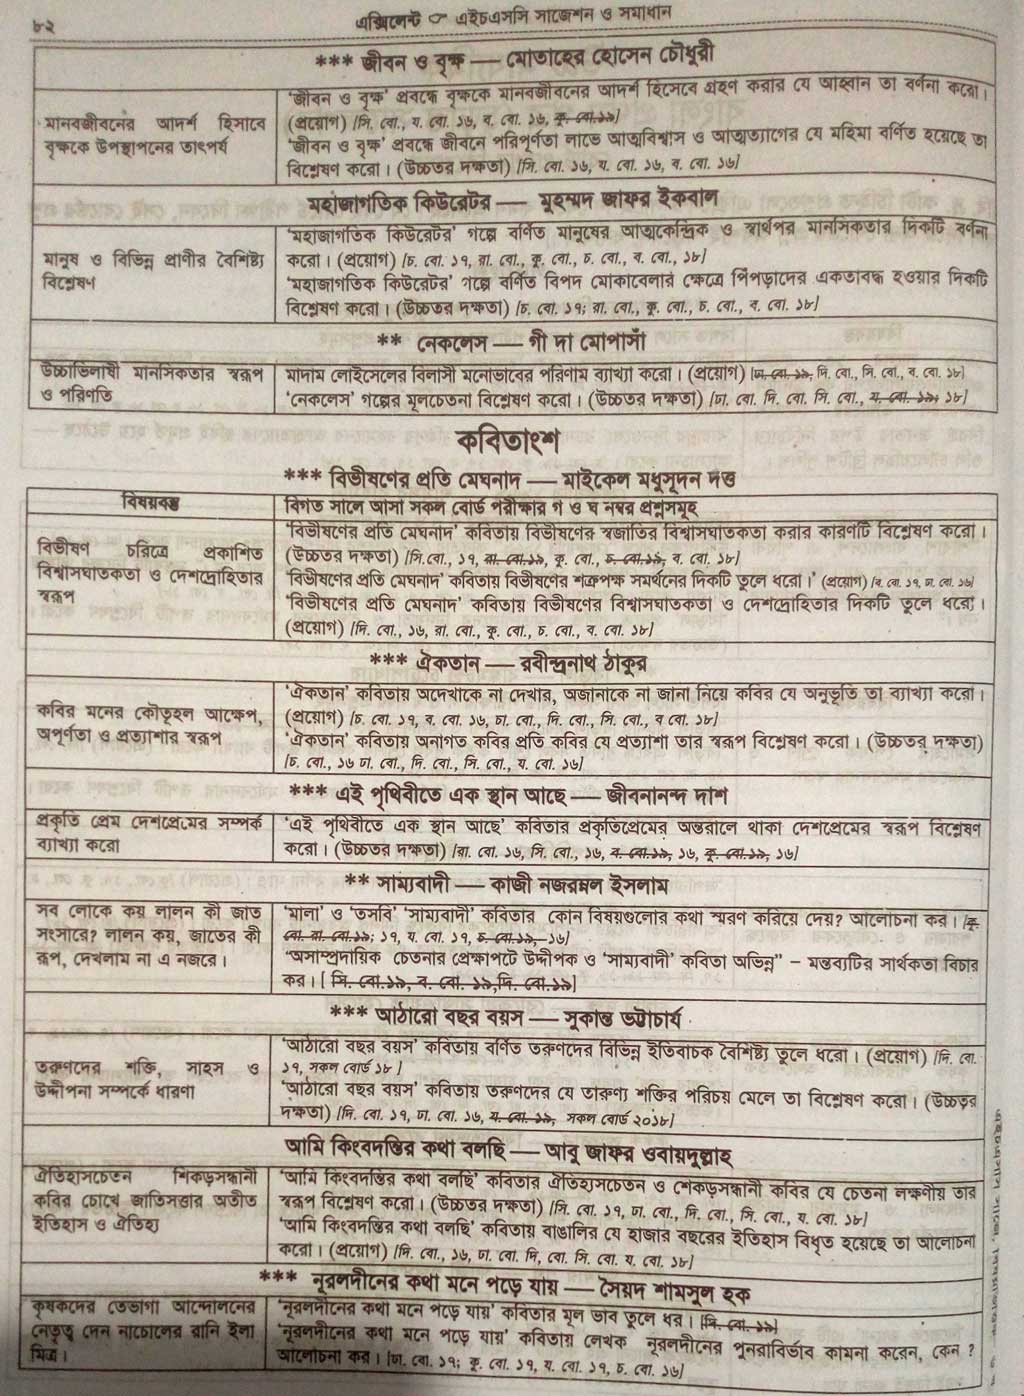 ৮২
এক্সিলেন্ট ☞ এইচএসসি সাজেশন ও সমাধান
*** জীবন ও বৃক্ষ — মোতাহের হোসেন চৌধুরী
মানবজীবনের আদর্শ হিসাবে
বৃক্ষকে উপস্থাপনের তাৎপর্য
'জীবন ও বৃক্ষ' প্রবন্ধে বৃক্ষকে মানবজীবনের আদর্শ হিসেবে গ্রহণ করার যে আহ্বান তা বর্ণনা করো।
(প্রয়োগ) [সি. বো., য. বো. ১৬, ব. বো. ১৬, কু. বো.১৯]
'জীবন ও বৃক্ষ' প্রবন্ধে জীবনে পরিপূর্ণতা লাভে আত্মবিশ্বাস ও আত্মত্যাগের যে মহিমা বর্ণিত হয়েছে তা
বিশ্লেষণ করো। (উচ্চতর দক্ষতা) [সি. বো. ১৬, য. বো. ১৬, ব. বো. ১৬]
মহাজাগতিক কিউরেটর — মুহম্মদ জাফর ইকবাল
মানুষ ও বিভিন্ন প্রাণীর বৈশিষ্ট্য
বিশ্লেষণ
'মহাজাগতিক কিউরেটর' গল্পে বর্ণিত মানুষের আত্মকেন্দ্রিক ও স্বার্থপর মানসিকতার দিকটি বর্ণনা
করো। (প্রয়োগ) [চ. বো. ১৭, রা. বো., কু. বো., চ. বো., ব. বো. ১৮]
'মহাজাগতিক কিউরেটর' গল্পে বর্ণিত বিপদ মোকাবেলার ক্ষেত্রে পিঁপড়াদের একতাবদ্ধ হওয়ার দিকটি
বিশ্লেষণ করো। (উচ্চতর দক্ষতা) [চ. বো. ১৭; রা. বো., কু. বো., চ. বো., ব. বো. ১৮]
** নেকলেস — গী দ্য মোপাসাঁ
উচ্চাভিলাষী মানসিকতার স্বরূপ
ও পরিণতি
মাদাম লোইসেলের বিলাসী মনোভাবের পরিণাম ব্যাখ্যা করো। (প্রয়োগ) [ঢা. বো. ১৯, দি. বো., সি. বো., ব. বো. ১৮]
'নেকলেস' গল্পের মূলচেতনা বিশ্লেষণ করো। (উচ্চতর দক্ষতা) [ঢা. বো. দি. বো. সি. বো., য. বো. ১৯; ১৮]
কবিতাংশ
*** বিভীষণের প্রতি মেঘনাদ — মাইকেল মধুসূদন দত্ত
বিষয়বস্তু
বিগত সালে আসা সকল বোর্ড পরীক্ষার গ ও ঘ নম্বর প্রশ্নসমূহ
বিভীষণ চরিত্রে প্রকাশিত
বিশ্বাসঘাতকতা ও দেশদ্রোহিতার
স্বরূপ
'বিভীষণের প্রতি মেঘনাদ' কবিতায় বিভীষণের স্বজাতির বিশ্বাসঘাতকতা করার কারণটি বিশ্লেষণ করো।
(উচ্চতর দক্ষতা) [সি.বো., ১৭, রা. বো.১৯, কু. বো., চ. বো.১৯, ব. বো. ১৮]
'বিভীষণের প্রতি মেঘনাদ' কবিতায় বিভীষণের শত্রুপক্ষ সমর্থনের দিকটি তুলে ধরো।' (প্রয়োগ) [ব. বো. ১৭, ঢা. বো. ১৬]
'বিভীষণের প্রতি মেঘনাদ' কবিতায় বিভীষণের বিশ্বাসঘাতকতা ও দেশদ্রোহিতার দিকটি তুলে ধরো।
(প্রয়োগ) [দি. বো., ১৬, রা. বো., কু. বো., চ. বো., ব. বো. ১৮]
*** ঐকতান — রবীন্দ্রনাথ ঠাকুর
কবির মনের কৌতূহল আক্ষেপ,
অপূর্ণতা ও প্রত্যাশার স্বরূপ
'ঐকতান' কবিতায় অদেখাকে না দেখার, অজানাকে না জানা নিয়ে কবির যে অনুভূতি তা ব্যাখ্যা করো।
(প্রয়োগ) [চ. বো. ১৭, ব. বো. ১৬, ঢা. বো., দি. বো., সি. বো., ব বো. ১৮]
'ঐকতান' কবিতায় অনাগত কবির প্রতি কবির যে প্রত্যাশা তার স্বরূপ বিশ্লেষণ করো। (উচ্চতর দক্ষতা)
[চ. বো., ১৬ ঢা. বো., দি. বো., সি. বো., য. বো. ১৬]
*** এই পৃথিবীতে এক স্থান আছে — জীবনানন্দ দাশ
প্রকৃতি প্রেম দেশপ্রেমের সম্পর্ক
ব্যাখ্যা করো
'এই পৃথিবীতে এক স্থান আছে' কবিতার প্রকৃতিপ্রেমের অন্তরালে থাকা দেশপ্রেমের স্বরূপ বিশ্লেষণ
করো। (উচ্চতর দক্ষতা) [রা. বো. ১৬, সি. বো., ১৬, ব. বো.১৯, ১৬, কু. বো.১৯, ১৬]
** সাম্যবাদী — কাজী নজরুল ইসলাম
সব লোকে কয় লালন কী জাত
সংসারে? লালন কয়, জাতের কী
রূপ, দেখলাম না এ নজরে।
'মালা' ও 'তসবি' 'সাম্যবাদী' কবিতার কোন বিষয়গুলোর কথা স্মরণ করিয়ে দেয়? আলোচনা কর। [কু.
বো. রা. বো.১৯; ১৭, য. বো. ১৭, চ. বো.১৯, ১৬]
"অসাম্প্রদায়িক চেতনার প্রেক্ষাপটে উদ্দীপক ও 'সাম্যবাদী' কবিতা অভিন্ন" – মন্তব্যটির সার্থকতা বিচার
কর। [ সি. বো.১৯, ব. বো. ১৯,দি. বো.১৯]
*** আঠারো বছর বয়স — সুকান্ত ভট্টাচার্য
তরুণদের শক্তি, সাহস ও
উদ্দীপনা সম্পর্কে ধারণা
'আঠারো বছর বয়স' কবিতায় বর্ণিত তরুণদের বিভিন্ন ইতিবাচক বৈশিষ্ট্য তুলে ধরো। (প্রয়োগ) [দি. বো.
১৭, সকল বোর্ড ১৮]
'আঠারো বছর বয়স' কবিতায় তরুণদের যে তারুণ্য শক্তির পরিচয় মেলে তা বিশ্লেষণ করো। (উচ্চতর
দক্ষতা) [দি. বো. ১৭, ঢা. বো. ১৬, য. বো. ১৯, সকল বোর্ড ২০১৮]
আমি কিংবদন্তির কথা বলছি — আবু জাফর ওবায়দুল্লাহ
ঐতিহ্যসচেতন শিকড়সন্ধানী
কবির চোখে জাতিসত্তার অতীত
ইতিহাস ও ঐতিহ্য
'আমি কিংবদন্তির কথা বলছি' কবিতার ঐতিহ্যসচেতন ও শেকড়সন্ধানী কবির যে চেতনা লক্ষণীয় তার
স্বরূপ বিশ্লেষণ করো। (উচ্চতর দক্ষতা) [সি. বো. ১৭, ঢা. বো., দি. বো., সি. বো., য. বো. ১৮]
'আমি কিংবদন্তির কথা বলছি' কবিতায় বাঙালির যে হাজার বছরের ইতিহাস বিধৃত হয়েছে তা আলোচনা
করো। (প্রয়োগ) [সি. বো., ১৬, ঢা. বো. দি, বো. সি. বো. য. বো. ১৮]
*** নূরলদীনের কথা মনে পড়ে যায় — সৈয়দ শামসুল হক
কৃষকদের তেভাগা আন্দোলনের
নেতৃত্ব দেন নাচোলের রানি ইলা
মিত্র।
'নূরলদীনের কথা মনে পড়ে যায়' কবিতার মূল ভাব তুলে ধর। [দি. বো. ১৯]
'নূরলদীনের কথা মনে পড়ে যায়' কবিতায় লেখক নূরলদীনের পুনরাবির্ভাব কামনা করেন, কেন ?
আলোচনা কর। [ঢা. বো. ১৭; কু. বো. ১৭, য. বো. ১৭, চ. বো. ১৬]